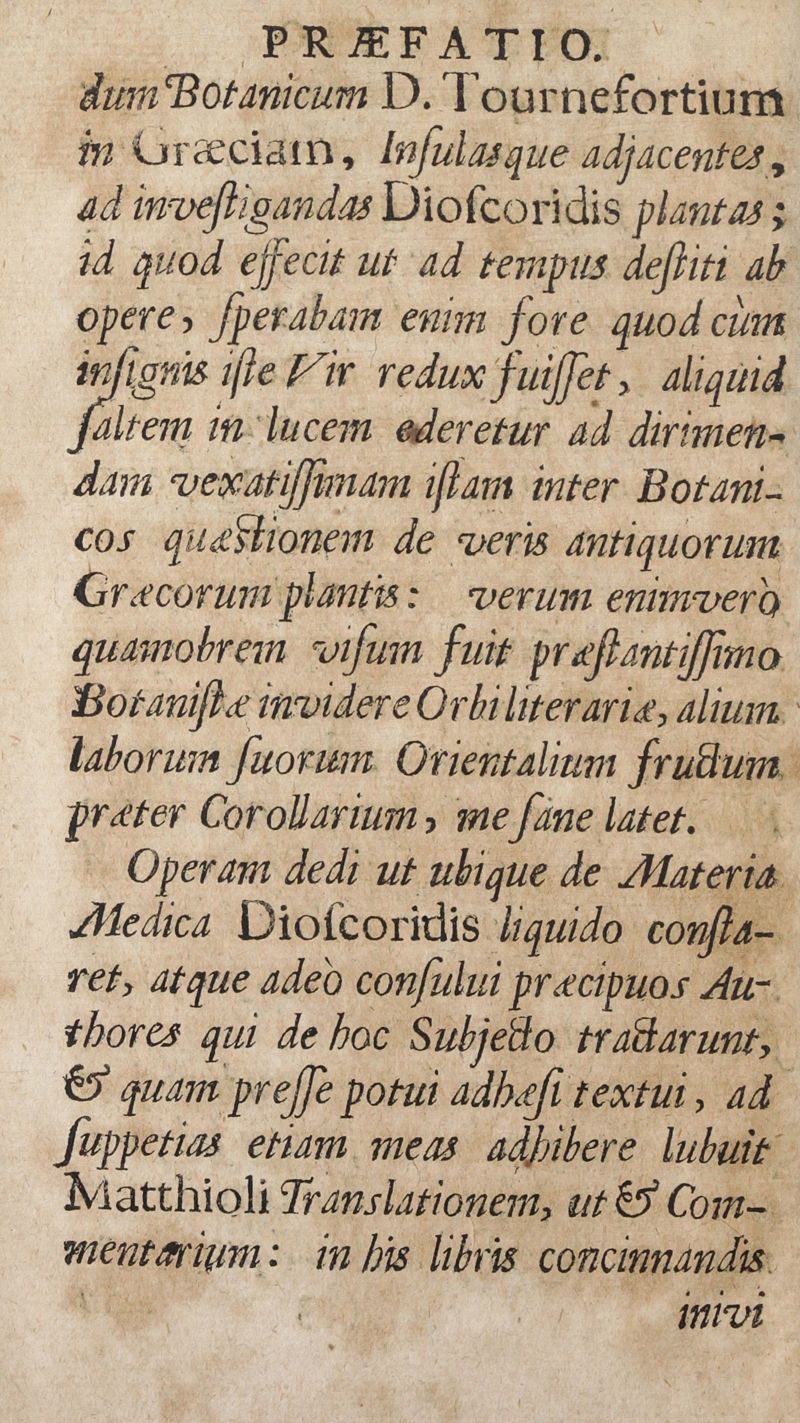 PRÆFATIO.
dum Botanicum D. Tournefortium
in Græciam, Inſulasque adjacentes,
ad inveſtigandas Dioſcoridis plantas;
id quod effecit ut ad tempus deſtiti ab
opere, ſperabam enim fore quod cùm
inſignis iſte Vir redux fuiſſet, aliquid
ſaltem in lucem ederetur ad dirimen-
dam vexatiſſimam iſtam inter Botani-
cos quæstionem de veris antiquorum
Græcorum plantis: verum enimverò
quamobrem viſum fuit præſtantiſſimo
Botaniſtæ invidere Orbi literariæ, alium
laborum ſuorum Orientalium fructum
præter Corollarium, me ſane latet.
Operam dedi ut ubique de Materia
Medica Dioſcoridis liquido conſta-
ret, atque adeò conſului præcipuos Au-
thores qui de hoc Subjecto tractarunt,
& quam preſſe potui adhæſi textui, ad
ſuppetias etiam meas adhibere lubuit
Matthioli Translationem, ut & Com-
mentarium: in his libris concinnandis
inivi